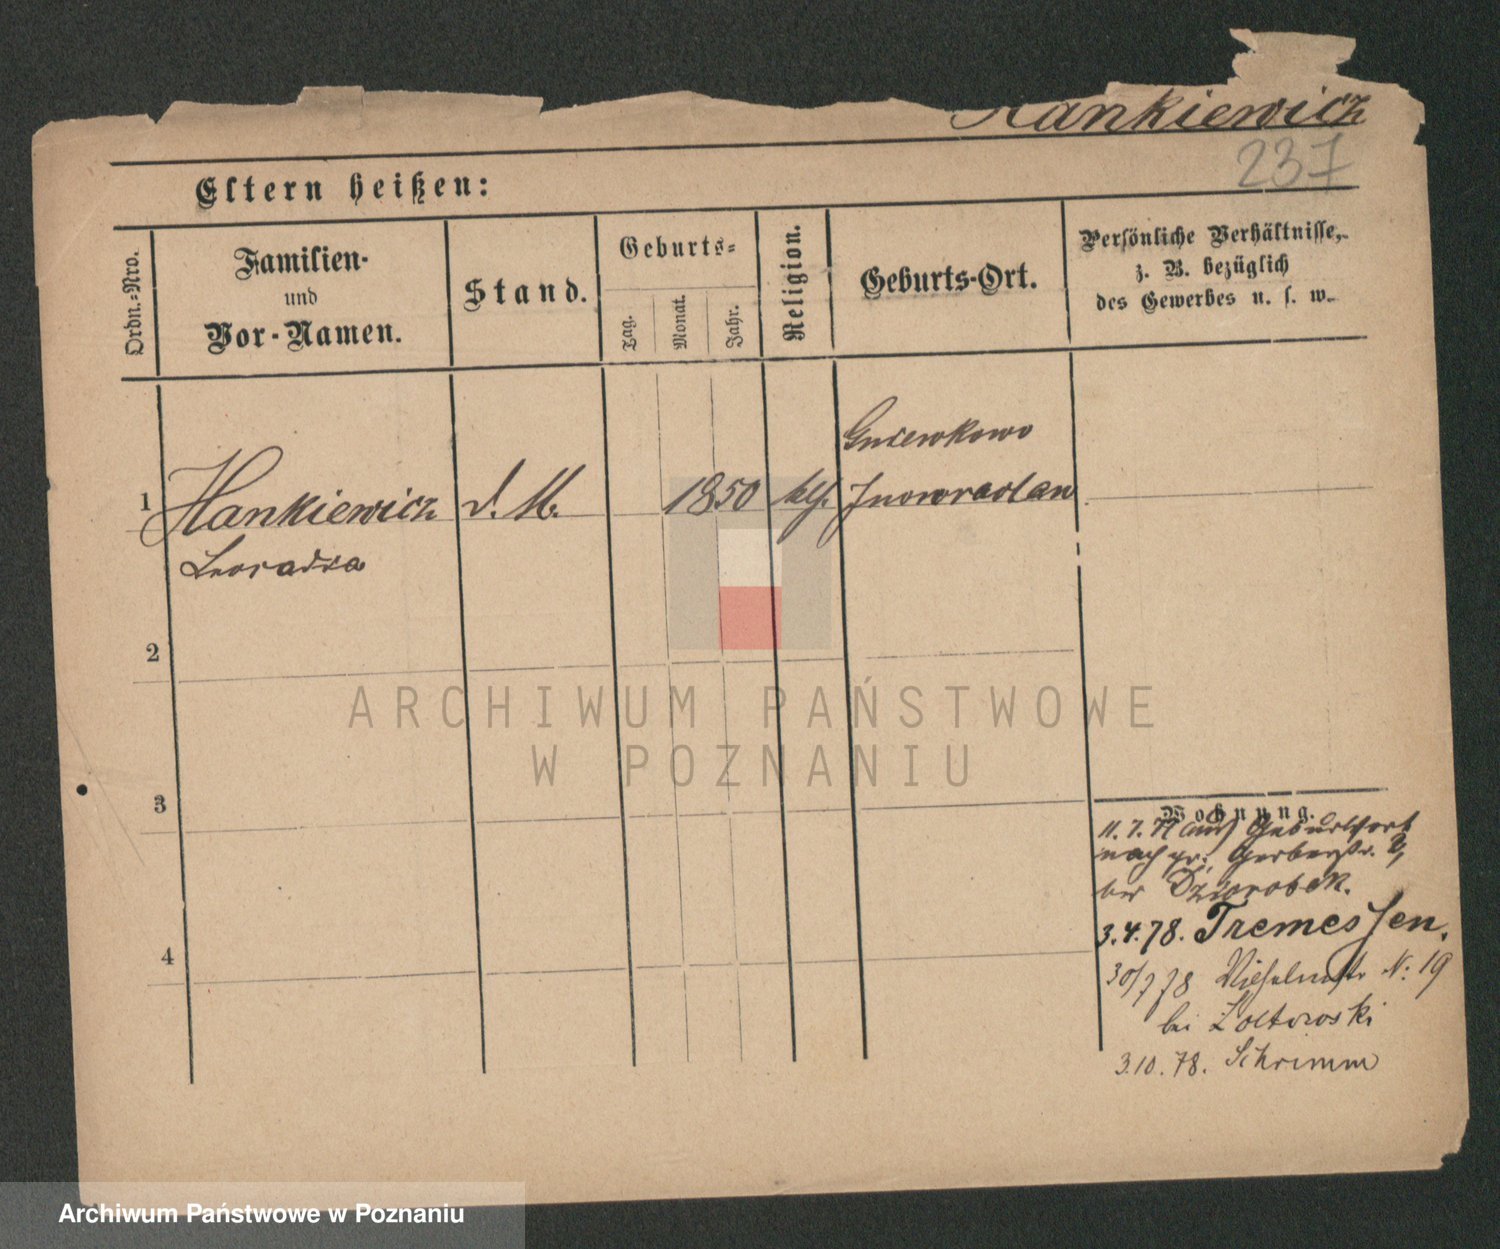 Hankiewicz
237
Eltern heißen:
Ordn.-Nro.
Familien-
und
Vor-Namen.
Stand.
Geburts-
Tag.
Monat.
Jahr.
Religion.
Geburts-Ort.
Persönliche Verhältnisse,
z. B. bezüglich
des Gewerbes u. s. w.
Gniewkowo
1 Hankiewicz d. M. 1850 kth. Inowraclaw
Leocadia
2
ARCHIWUM PAŃSTWOWE
W POZNANIU
3
Wohnung.
11.7.77 Geburtsort
nach gr. Gerberstr.
bei
4
3.4.78. Tremessen.
30/7 78 Wilhelmstr N: 19
bei Zoltowski
3.10.78. Schrimm
Archiwum Państwowe w Poznaniu